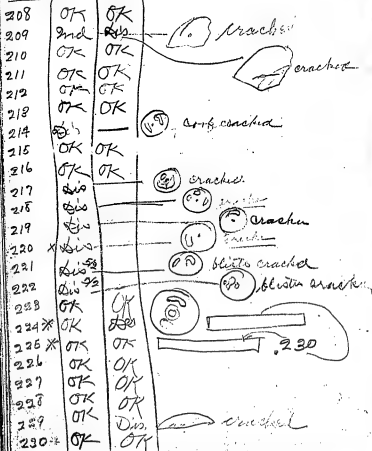 208 OK OK
209 2nd Dis cracked
210 OK OK
cracked
211 OK OK
212 OK OK
213 OK OK
214 Dis — cracked
215 OK OK
216 OK OK
217 Dis cracked
218 Dis cracked
219 Dis cracked
220 x Dis cracked
221 Dis blister cracked
222 Dis blister crack
223 OK OK
224 x OK
225 x OK OK .230
226 OK OK
227 OK OK
228 OK OK
229 OK Dis. cracked
230 x OK OK